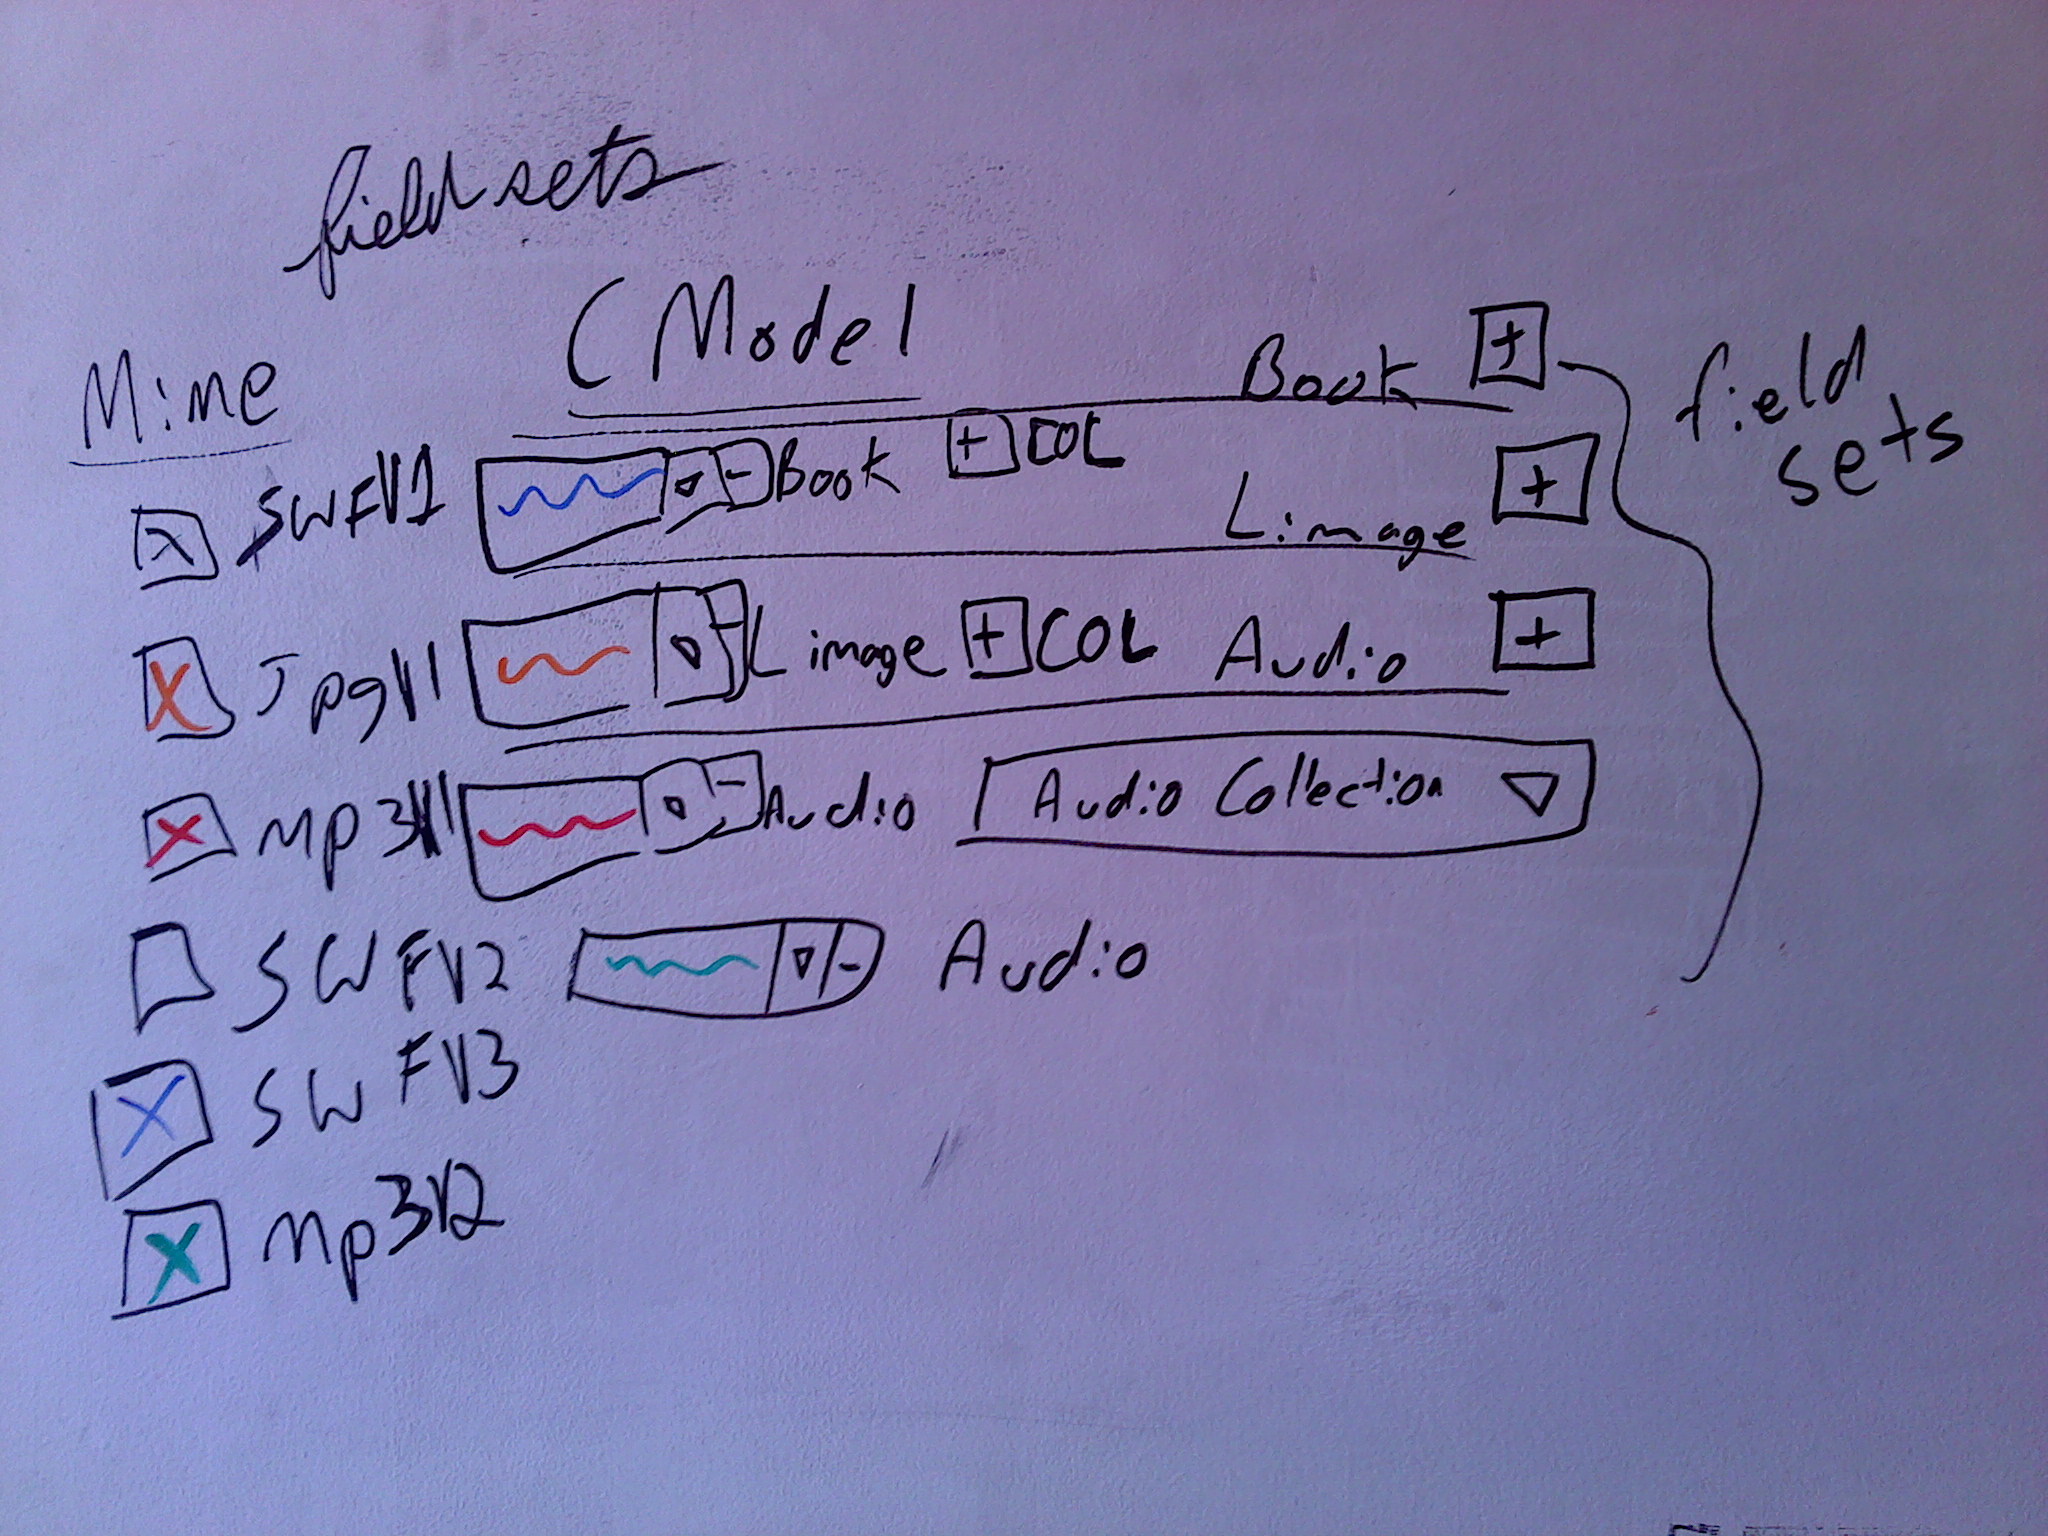 fieldsets
Mime
CModel
Book +
field
sets
X SWFV1
- Book + COL
Limage +
X JpgV1
- Limage + COL
Audio +
X Mp3V1
- Audio
Audio Collection
SWFV2
- Audio
X SWFV3
X Mp3V2